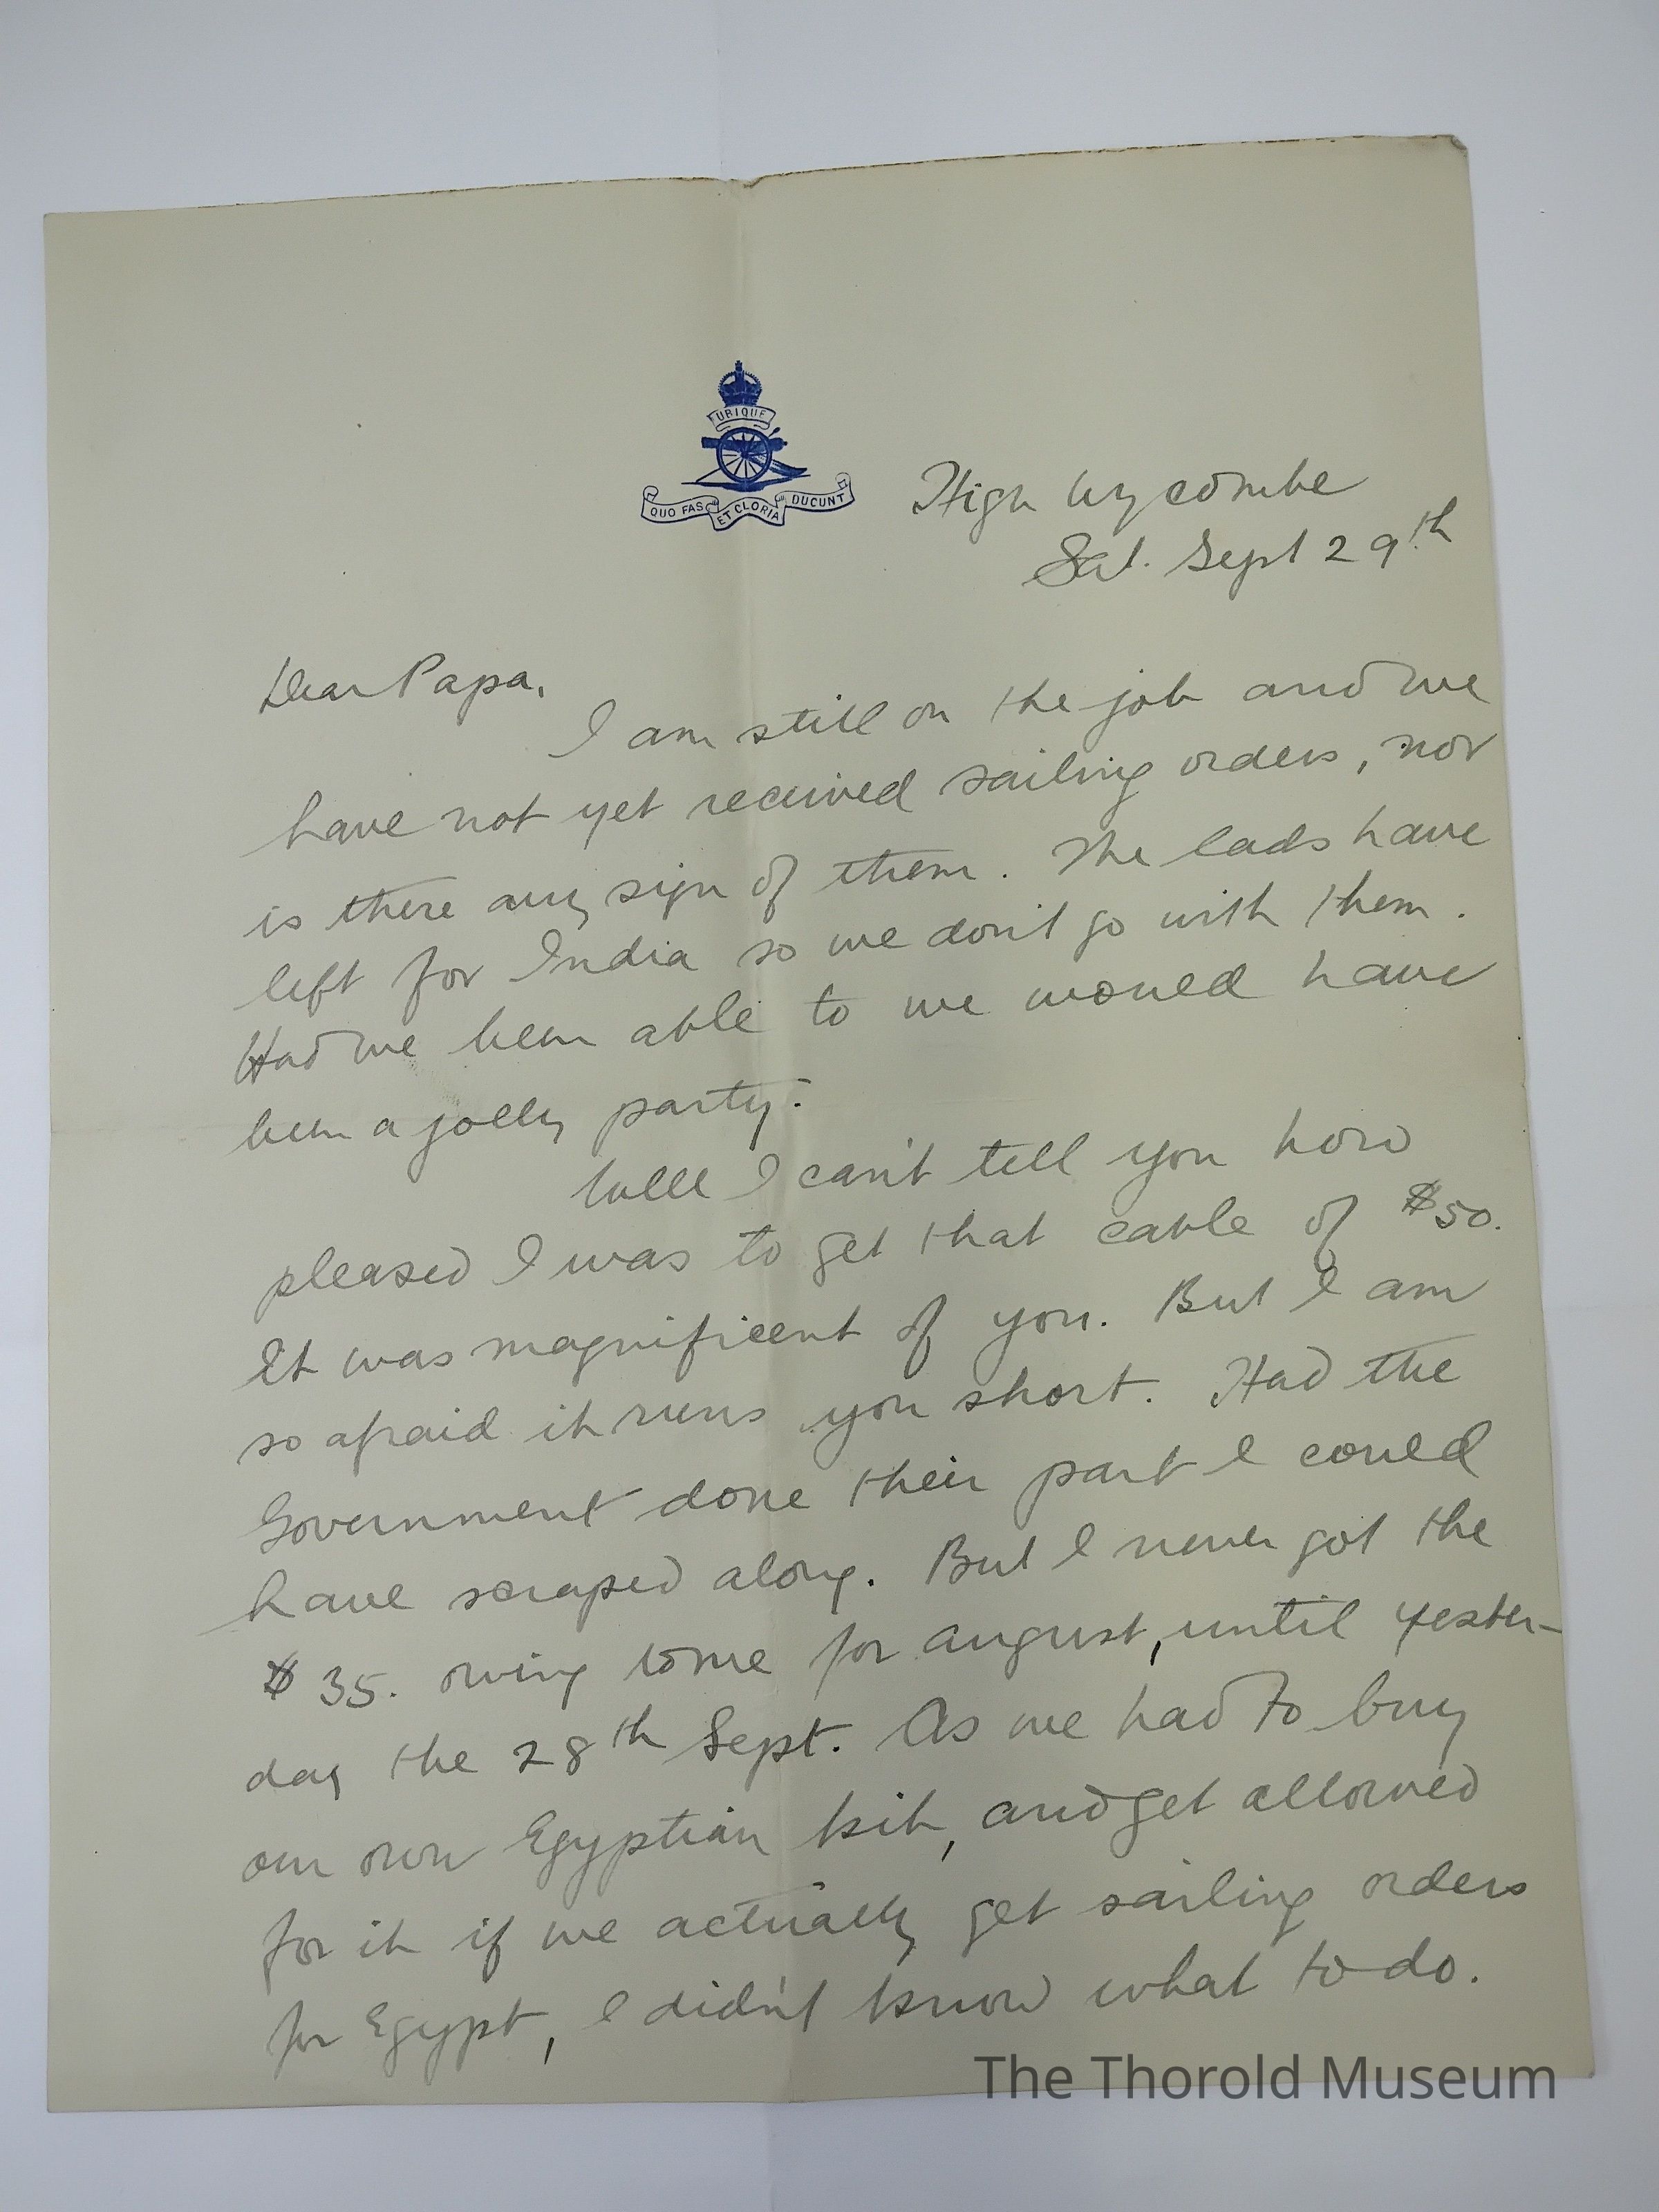 UBIQUE
QUO FAS ET GLORIA DUCUNT
High Wycombe
Sat. Sept 29th
Dear Papa,
I am still on the job and we
have not yet received sailing orders, nor
is there any sign of them. The lads have
left for India so we don't go with them.
Had we been able to we would have
been a jolly party.
Well I can't tell you how
pleased I was to get that cable of $50.
It was magnificent of you. But I am
so afraid it runs you short. Had the
Government done their part I could
have scraped along. But I never got the
$35. owing to me for August, until yester-
day the 28th Sept. As we had to buy
our own Egyptian kit, and get allowed
for it if we actually get sailing orders
for Egypt, I didn't know what to do.
The Thorold Museum